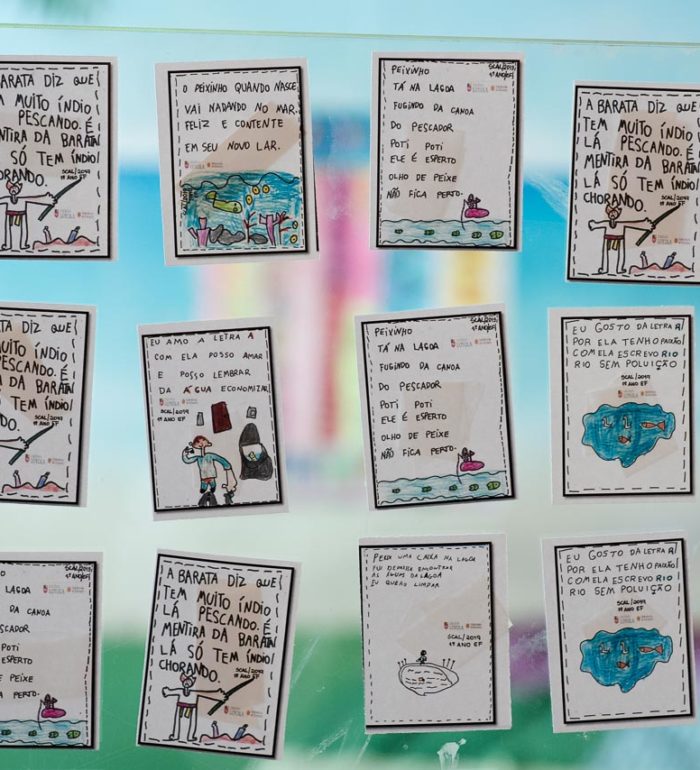 BARATA DIZ QUE
MUITO ÍNDIO
PESCANDO. É
MENTIRA DA BARATA
SÓ TEM ÍNDIO
CHORANDO.
SCAL/2019
1º ANO EF
O PEIXINHO QUANDO NASCE
VAI NADANDO NO MAR.
FELIZ E CONTENTE
EM SEU NOVO LAR.
PEIXINHO
TÁ NA LAGOA
FUGINDO DA CANOA
DO PESCADOR
POTI POTI
ELE É ESPERTO
OLHO DE PEIXE
NÃO FICA PERTO.
SCAL/2019
1º ANO/EF
A BARATA DIZ QUE
TEM MUITO ÍNDIO
LÁ PESCANDO. É
MENTIRA DA BARATA
LÁ SÓ TEM ÍNDIO
CHORANDO.
SCAL/2019
1º ANO EF
DIZ QUE
MUITO ÍNDIO
PESCANDO. É
DA BARATA
SÓ TEM ÍNDIO
SCAL/2019
1º ANO EF
EU AMO A LETRA A
COM ELA POSSO AMAR
E POSSO LEMBRAR
DA ÁGUA ECONOMIZAR
SCAL/2019
1º ANO EF
PEIXINHO
TÁ NA LAGOA
FUGINDO DA CANOA
DO PESCADOR
POTI POTI
ELE É ESPERTO
OLHO DE PEIXE
NÃO FICA PERTO.
SCAL/2019
1º ANO/EF
EU GOSTO DA LETRA R
POR ELA TENHO PAIXÃO
COM ELA ESCREVO RIO
RIO SEM POLUIÇÃO
SCAL/2019
1º ANO EF
LAGOA
DA CANOA
POTI
ESPERTO
DE PEIXE
PERTO.
1º ANO/EF
A BARATA DIZ QUE
TEM MUITO ÍNDIO
LÁ PESCANDO. É
MENTIRA DA BARATA
LÁ SÓ TEM ÍNDIO
CHORANDO.
SCAL/2019
1º ANO EF
PERDI UMA CAIXA NA LAGOA
FUI
AS ÁGUAS DA LAGOA
EU QUERO LIMPAR
SCAL/2019
1º ANO EF
EU GOSTO DA LETRA R
POR ELA TENHO PAIXÃO
COM ELA ESCREVO RIO
RIO SEM POLUIÇÃO
SCAL/2019
1º ANO EF